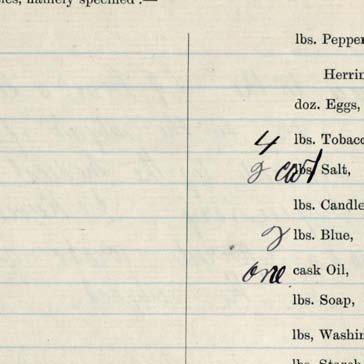 namely specified :—
lbs. Pepper
Herrin
doz. Eggs,
4 lbs. Tobacc
2 cwt lbs. Salt,
lbs. Candle
2 lbs. Blue,
one cask Oil,
lbs. Soap,
lbs, Washin
lbs. Starch